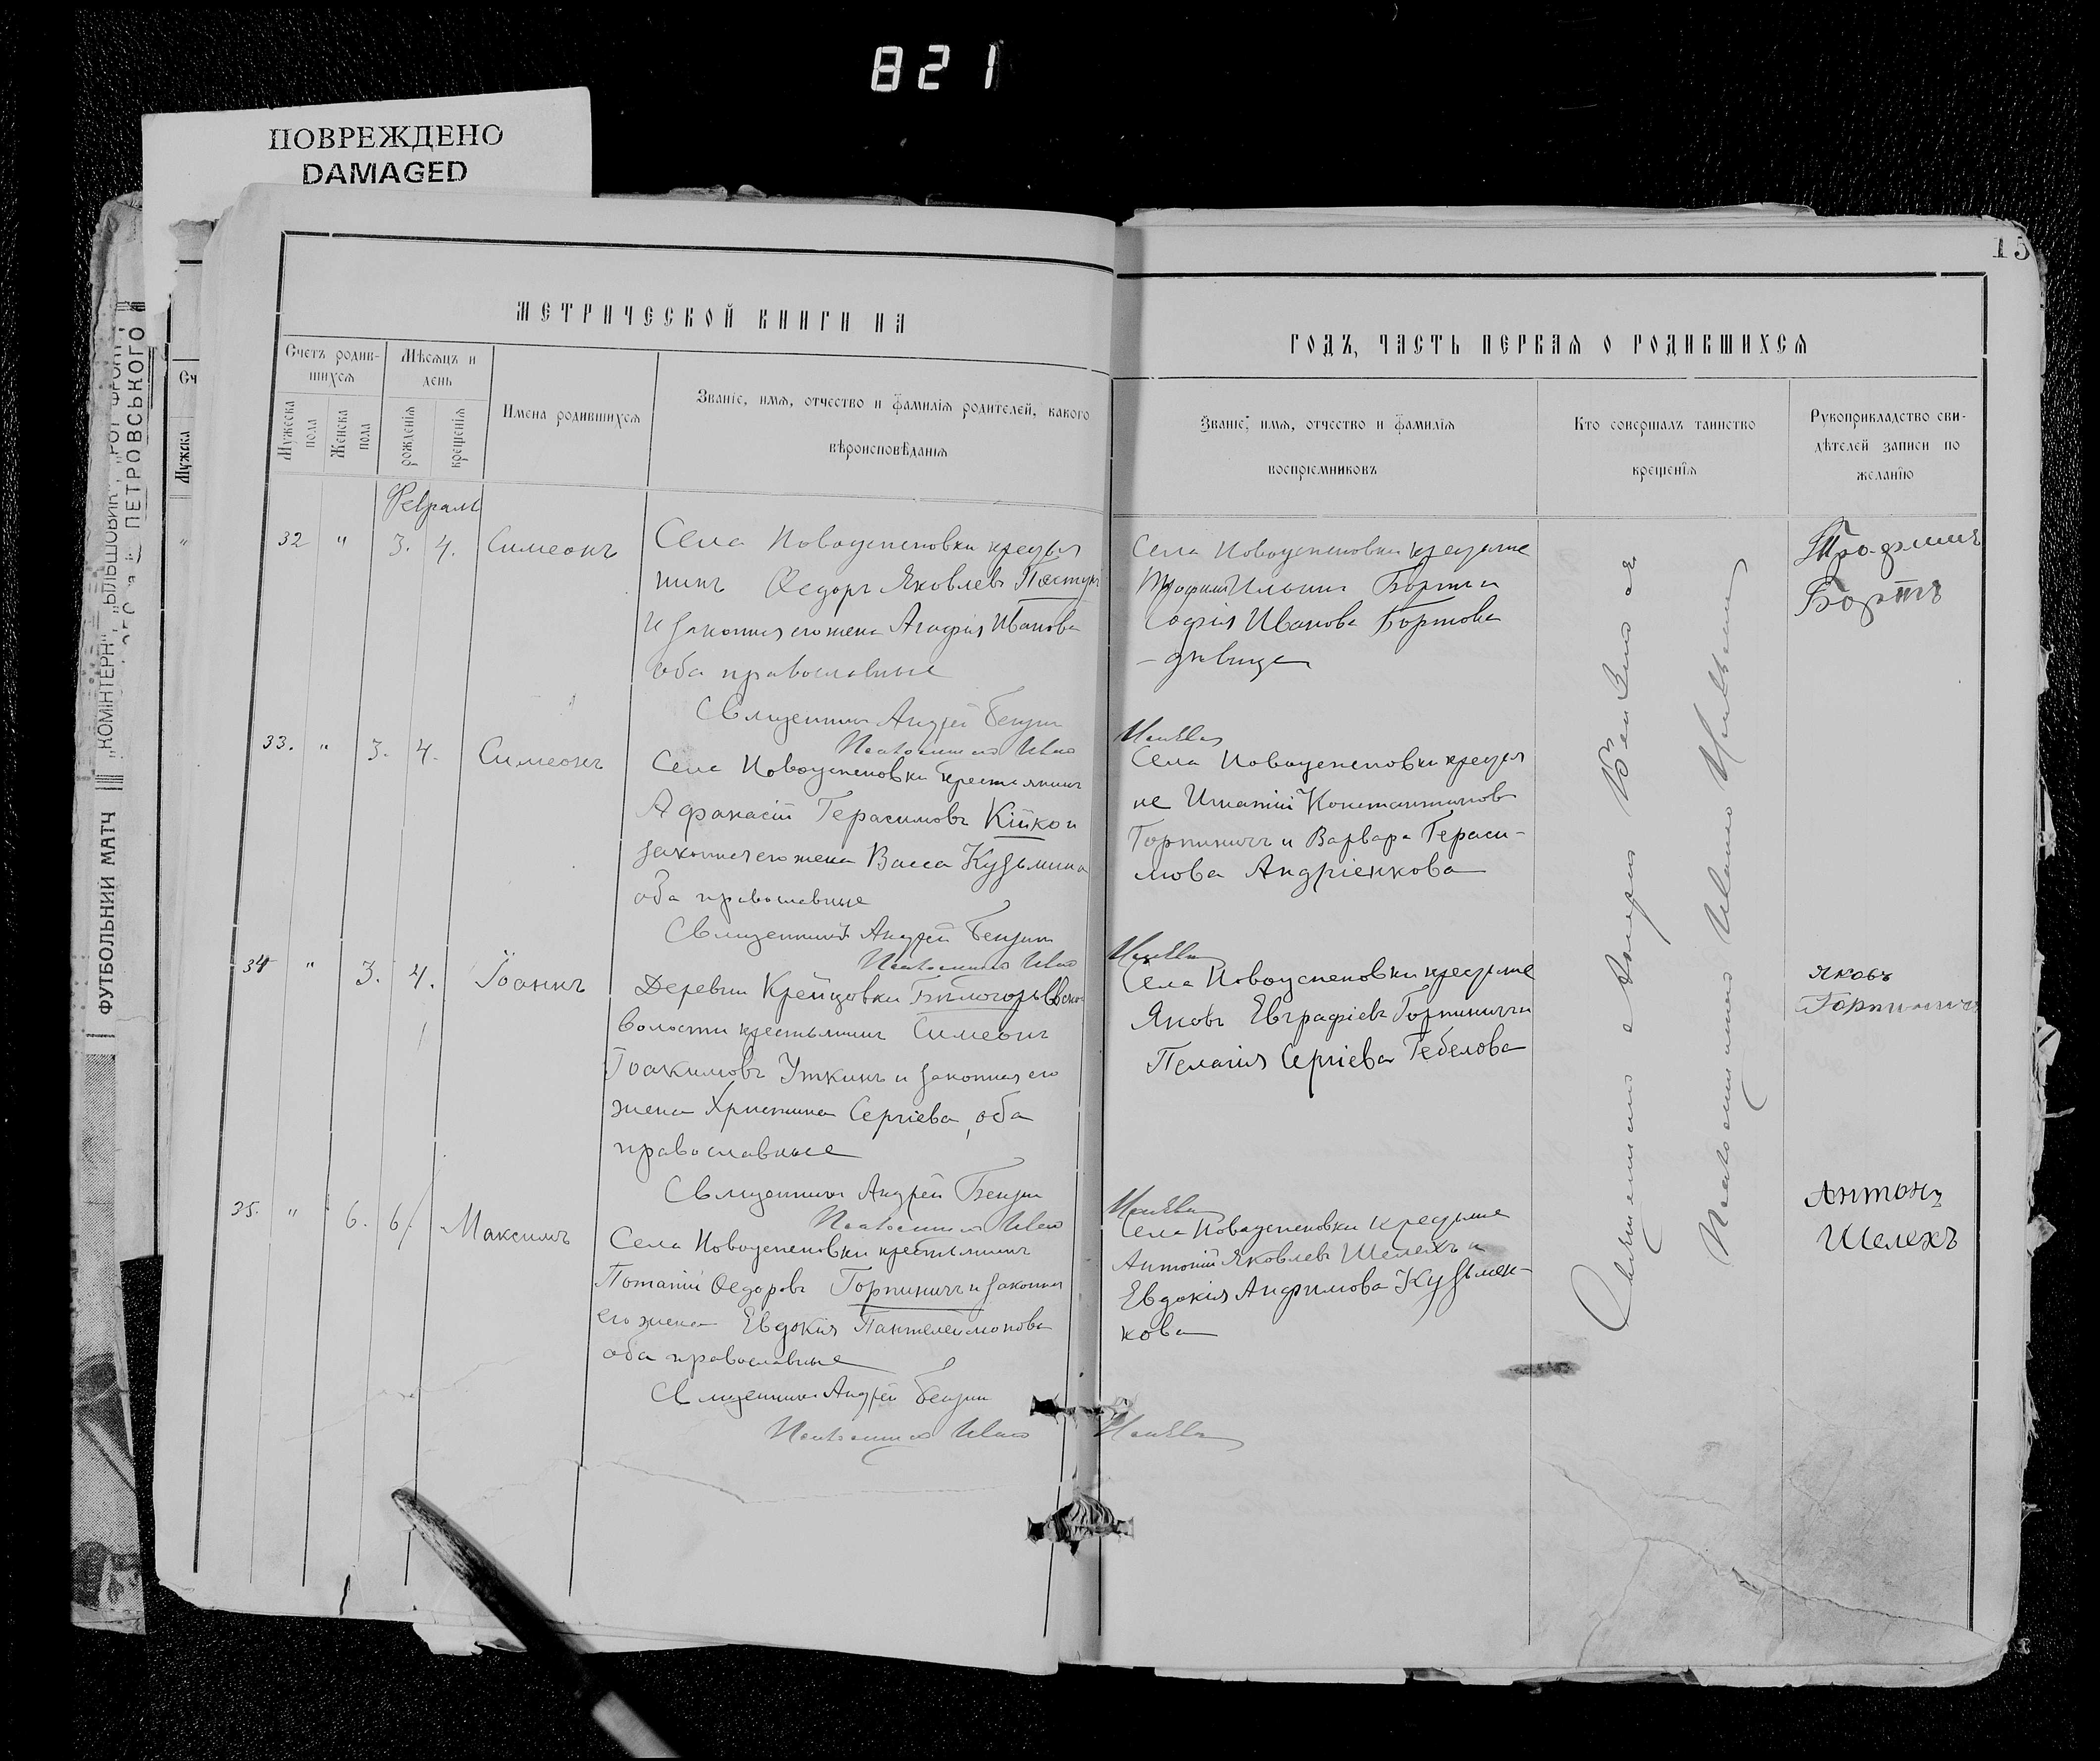 821
ПОВРЕЖДЕНО
DAMAGED
15
ФУТБОЛЬНИЙ МАТЧ
"КОМІНТЕРН",
ПЕТРОВСЬКОГО
Сч
Мужеска
МЕТРИЧЕСКОЙ КНИГИ НА
Счетъ родив-
шихся
Мѣсяцъ и
день
Мужеска
пола
Женска
пола
рожденія
крещенія
Имена родившихся
Званіе, имя, отчество и фамилія родителей, какого
вѣроисповѣданія
Февраль
32 " 3. 4. Симеонъ
Села Новоуспеновки крестья
нинъ Ѳедоръ Яковлевъ
и законная его жена Агафія Иванова
оба православные
Священникъ Андрей
Псаломщикъ
33. " 3. 4. Симеонъ
Села Новоуспеновки крестьянинъ
Афанасій Герасимовъ Кійко и
законная его жена Васса Кузьмина
оба православные
Священникъ Андрей
Псаломщикъ
34 " 3. 4. Іоаннъ
Деревни Крейцовки
волости крестьянинъ Симеонъ
Іоакимовъ Уткинъ и законная его
жена Христина Сергіева, оба
православные
Священникъ Андрей
Псаломщикъ
35. " 6. 6. Максимъ
Села Новоуспеновки крестьянинъ
Потапій Ѳедоровъ Горпиничъ и законная
его жена Евдокія Пантелеимонова
оба православные
Священникъ Андрей
Псаломщикъ
ГОДЪ, ЧАСТЬ ПЕРВАЯ О РОДИВШИХСЯ
Званіе, имя, отчество и фамилія
воспріемниковъ
Кто совершалъ таинство
крещенія
Рукоприкладство сви-
дѣтелей записи по
желанію
Села Новоуспеновки крестьяне
Трофимъ Ильинъ Бортъ и
Софія Иванова Бортова
– дѣвица
Трофимъ
Бортъ
Села Новоуспеновки крестья
не Игнатій Константиновъ
Горпиничъ и Варвара Гераси-
мова Андріенкова
Села Новоуспеновки крестьяне
Яковъ Евграфіевъ Горпиничъ и
Пелагія Сергіева Гебелова
Яковъ
Горпиничъ
Села Новоуспеновки крестьяне
Антоній Яковлевъ Шелехъ и
Евдокія Анфимова Кузьмен-
кова
Антонъ
Шелехъ
Священникъ Андрей
Псаломщикъ